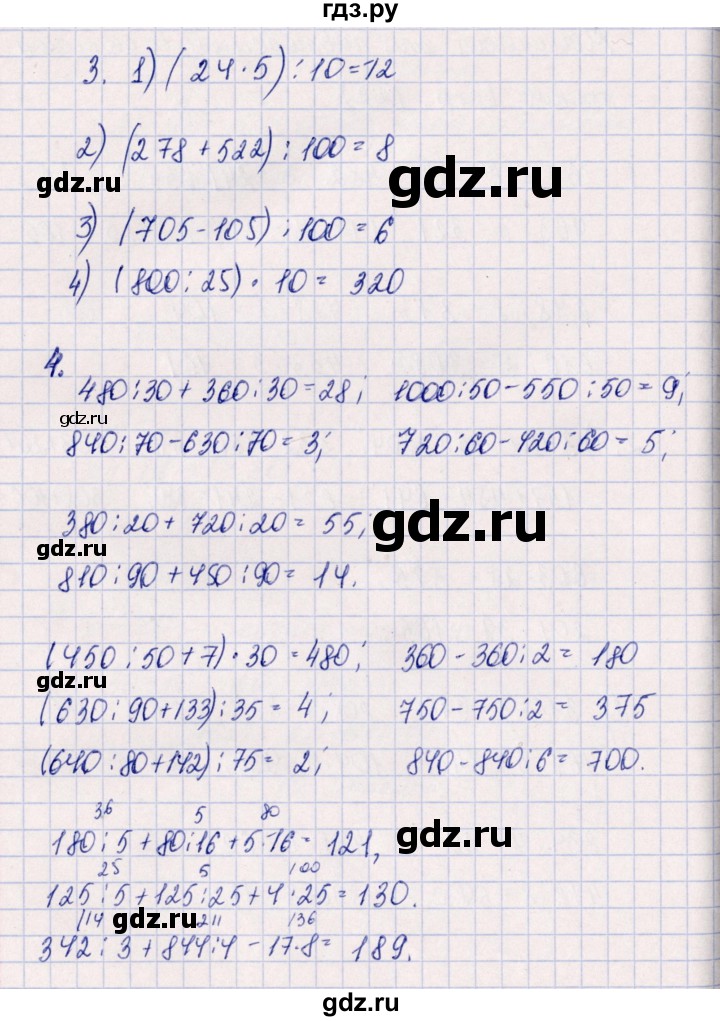 гдз.ру
3. 1) (24·5):10=12
2) (278+522):100=8
gdz.ru
gdz.ru
3) (705-105):100=6
4) (800:25)·10=320
4.
480:30+360:30=28; 1000:50-550:50=9;
gdz.ru
840:70-630:70=3; 720:60-420:60=5;
gdz.ru
380:20+720:20=55;
gdz.ru
810:90+450:90=14.
(450:50+7)·30=480; 360-360:2=180
gdz.ru
(630:90+133):35=4; 750-750:2=375
(640:80+142):75=2; 840-840:6=700.
36 5 80
180:5+80:16+5·16=121,
gdz.ru
25 5 100
125:5+125:25+4·25=130.
114 211 136
gdz.ru
342:3+844:4-17·8=189.
gdz.ru